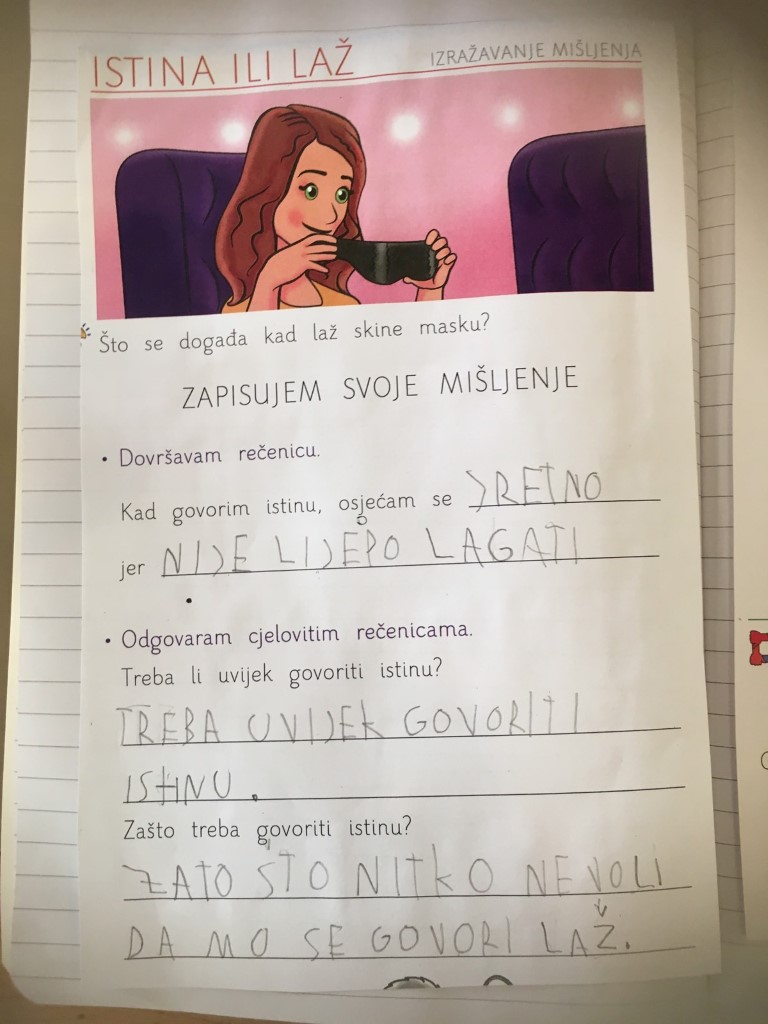 ISTINA ILI LAŽ
IZRAŽAVANJE MIŠLJENJA
Što se događa kad laž skine masku?
ZAPISUJEM SVOJE MIŠLJENJE
• Dovršavam rečenicu.
Kad govorim istinu, osjećam se SRETNO
jer NIJE LIJEPO LAGATI
.
• Odgovaram cjelovitim rečenicama.
Treba li uvijek govoriti istinu?
TREBA UVIJEK GOVORITI
ISTINU.
Zašto treba govoriti istinu?
ZATO ŠTO NITKO NE VOLI
DA MO SE GOVORI LAŽ.